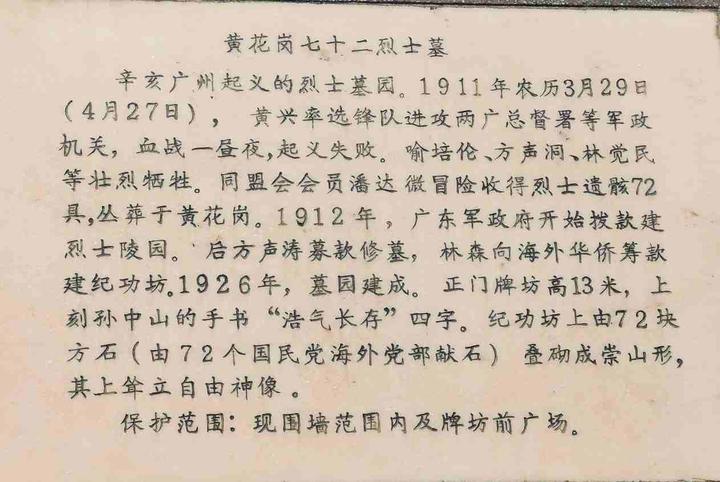 黄花岗七十二烈士墓
辛亥广州起义的烈士墓园。1911年农历3月29日
(4月27日)，黄兴率选锋队进攻两广总督署等军政
机关，血战一昼夜,起义失败。喻培伦、方声洞、林觉民
等壮烈牺牲。同盟会会员潘达微冒险收得烈士遗骸72
具,丛葬于黄花岗。1912年，广东军政府开始拨款建
烈士陵园。后方声涛募款修墓，林森向海外华侨筹款
建纪功坊。1926年，墓园建成。正门牌坊高13米，上
刻孙中山的手书“浩气长存”四字。纪功坊上由72块
方石(由72个国民党海外党部献石)叠砌成崇山形，
其上耸立自由神像。
保护范围：现围墙范围内及牌坊前广场。